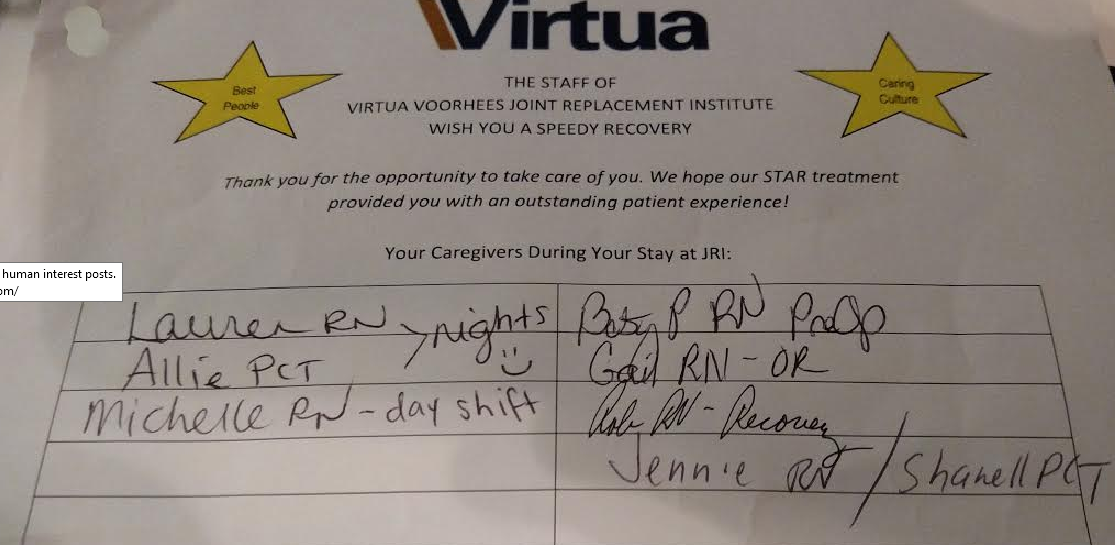 Virtua
Best
People
Caring
Culture
THE STAFF OF
VIRTUA VOORHEES JOINT REPLACEMENT INSTITUTE
WISH YOU A SPEEDY RECOVERY
Thank you for the opportunity to take care of you. We hope our STAR treatment
provided you with an outstanding patient experience!
Your Caregivers During Your Stay at JRI:
human interest posts.
om/
Lauren RN > nights
Betsy P RN PreOp
Allie PCT
Gail RN - OR
Michelle RN - day shift
Rob RN - Recovery
Jennie RN / Shanell PCT